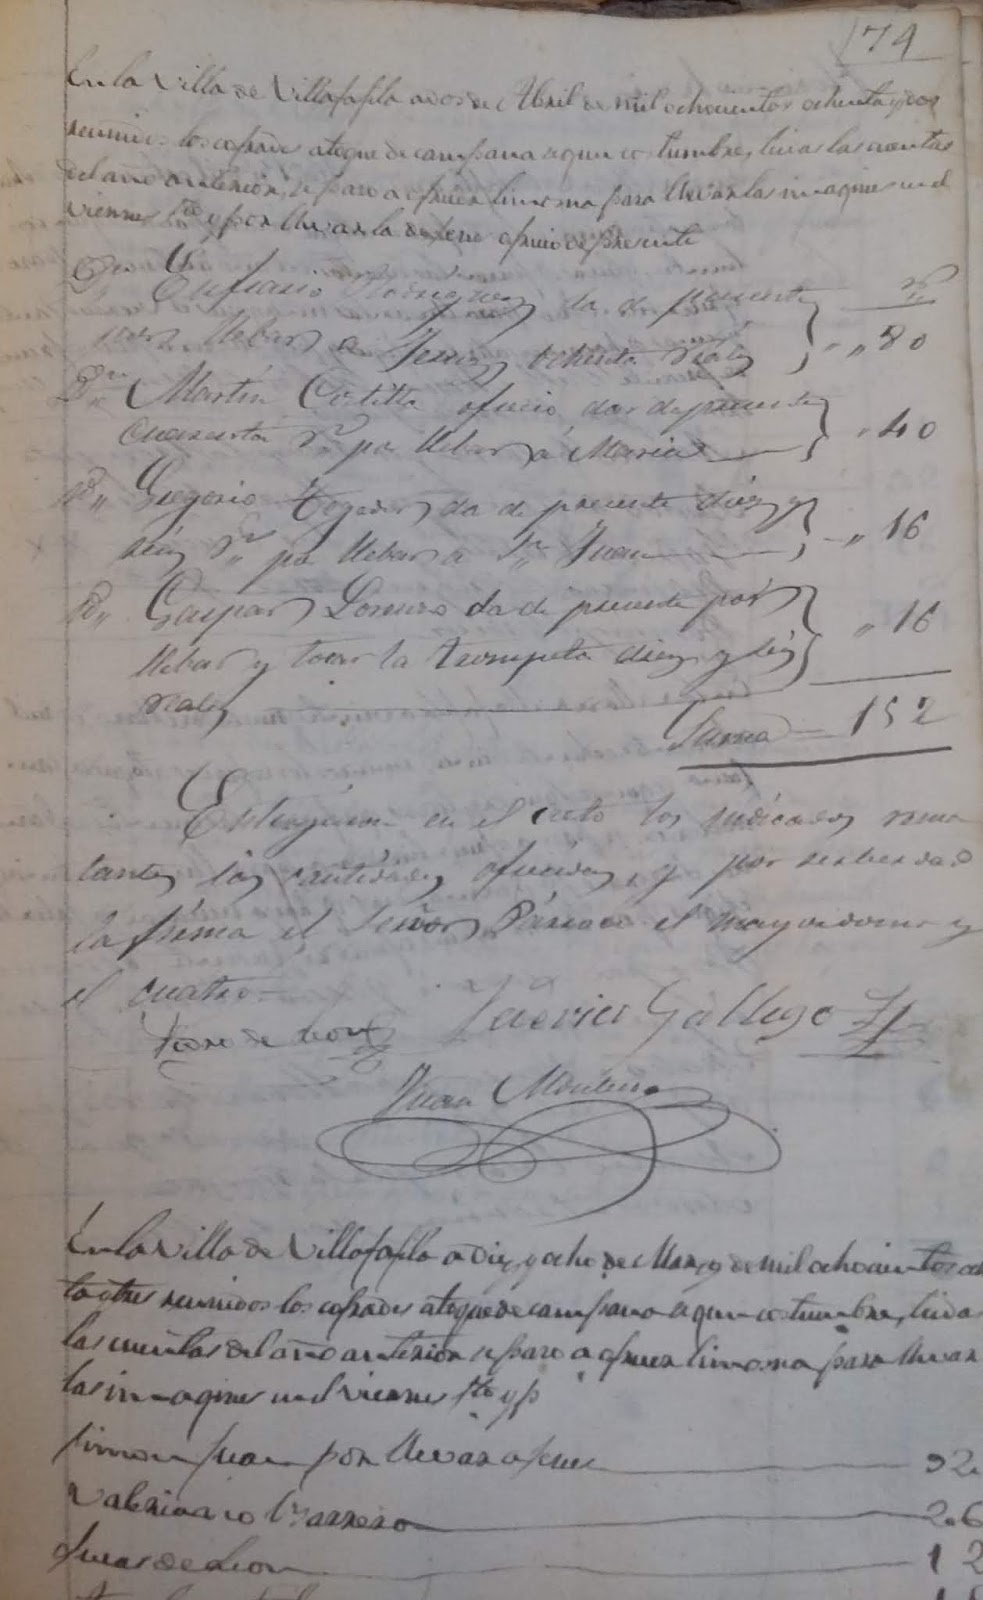 174
En la Villa de Villafafila a dos de Abril de mil ochocientos ochenta y dos
reunidos los cofrades a toque de campana segun costumbre, leidas las cuentas
del año anterior, se paso a ofrecer limosna para llevar las imagines en el
viernes Sto y por llevar la de ofrecio de presente
Eufrasio Rodriguez da de presente
por llebar a Jesus ochenta reales " " 80
Martin Costilla ofrecio dar de presente
cuarenta rs por llebar a Maria " 40
Gregorio da de presente diez y
seis rs por llebar a Sn Juan " 16
Gaspar Lorenzo da de presente por
llebar y tocar la trompeta diez y seis " 16
reales
Suma = 152
en el acto los indicados rema
tantes las cantidades ofrecidas, y por verdad
la firma el Señor Párroco el mayordomo y
el cuatro =
Federico Gallego
Juan
En la Villa de Villafafila a diez y ocho de Marzo de mil ochocientos oc
ta y tres reunidos los cofrades a toque de campana segun costumbre, leidas
las cuentas del año anterior se paso a ofrecer limosna para llevar
las imagines en el viernes Sto y p
Simon Juan por llevar a Jesus 92
Valeriano Barrero 26
Lucas de Leon 12